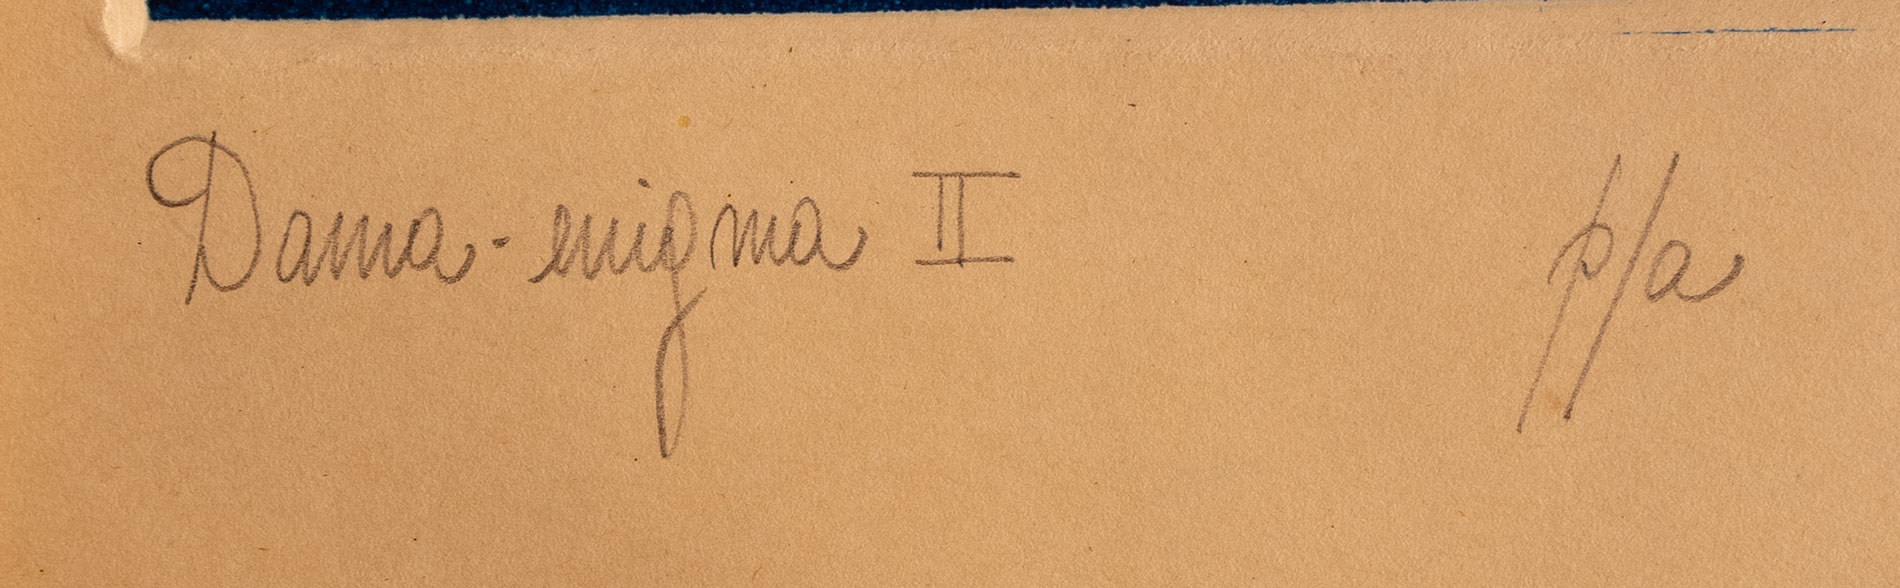 Dama-enigma II p/a